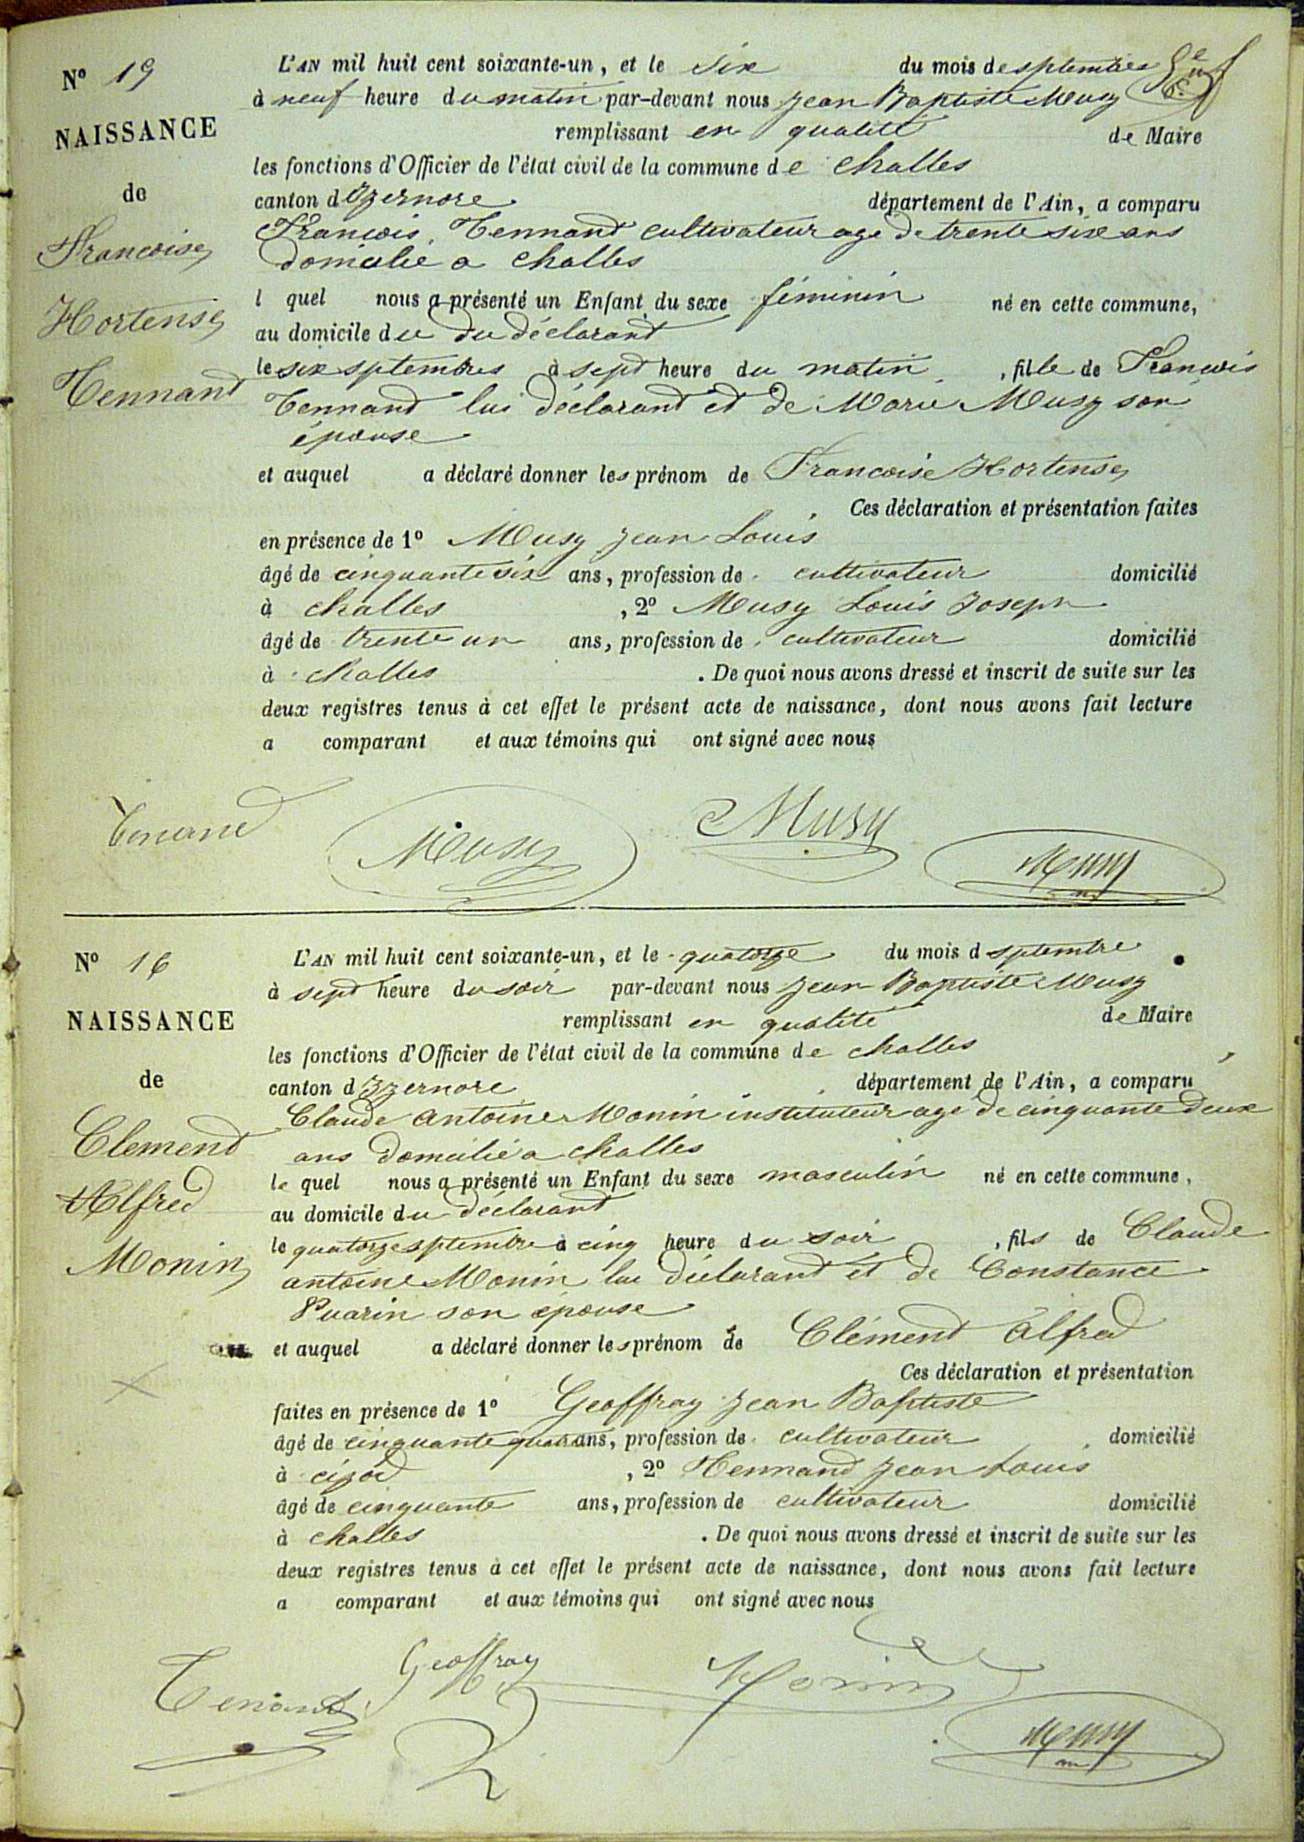 N° 19
NAISSANCE
de
Francoise
Hortense
Tennand
L'AN mil huit cent soixante-un, et le six du mois de sptembres
à neuf heure du matin par-devant nous jean Baptiste Musy
remplissant en qualité de Maire
les fonctions d'Officier de l'état civil de la commune de challes
canton d Izernore département de l'Ain, a comparu
François Tennand cultivateur age de trente six ans
domicilié a challes
l quel nous a présenté un Enfant du sexe féminin né en cette commune,
au domicile du du déclarant
le six sptembres à sept heure du matin, fille de Francois
Tennand lui déclarant et de Marie Musy son
épouse
et auquel a déclaré donner les prénom de Francoise Hortense
Ces déclaration et présentation faites
en présence de 1° Musy jean Louis
âgé de cinquante six ans, profession de cultivateur domicilié
à challes, 2° Musy Louis Joseph
âgé de trente un ans, profession de cultivateur domicilié
à challes. De quoi nous avons dressé et inscrit de suite sur les
deux registres tenus à cet effet le présent acte de naissance, dont nous avons fait lecture
a comparant et aux témoins qui ont signé avec nous
Tenand Musy Musy Musy
N° 16
NAISSANCE
de
Clement
Alfred
Monin
L'AN mil huit cent soixante-un, et le quatorze du mois d sptembre
à sept heure du soir par-devant nous jean Baptiste Musy
remplissant en qualité de Maire
les fonctions d'Officier de l'état civil de la commune de challes
canton d Izernore département de l'Ain, a comparu
Claude antoine Monin instituteur age de cinquante deux
ans domicilié a challes
le quel nous a présenté un Enfant du sexe masculin né en cette commune,
au domicile du déclarant
le quatorze sptembre à cinq heure du soir, fils de Claude
antoine Monin lui déclarant et de Constance
Puarin son épouse
et auquel a déclaré donner les prénom de Clément alfred
Ces déclaration et présentation
faites en présence de 1° Geoffray jean Baptiste
âgé de cinquante quatre ans, profession de cultivateur domicilié
à cizod, 2° Tennand jean Louis
âgé de cinquante ans, profession de cultivateur domicilié
à challes. De quoi nous avons dressé et inscrit de suite sur les
deux registres tenus à cet effet le présent acte de naissance, dont nous avons fait lecture
a comparant et aux témoins qui ont signé avec nous
Tenand Geoffray Monin Musy